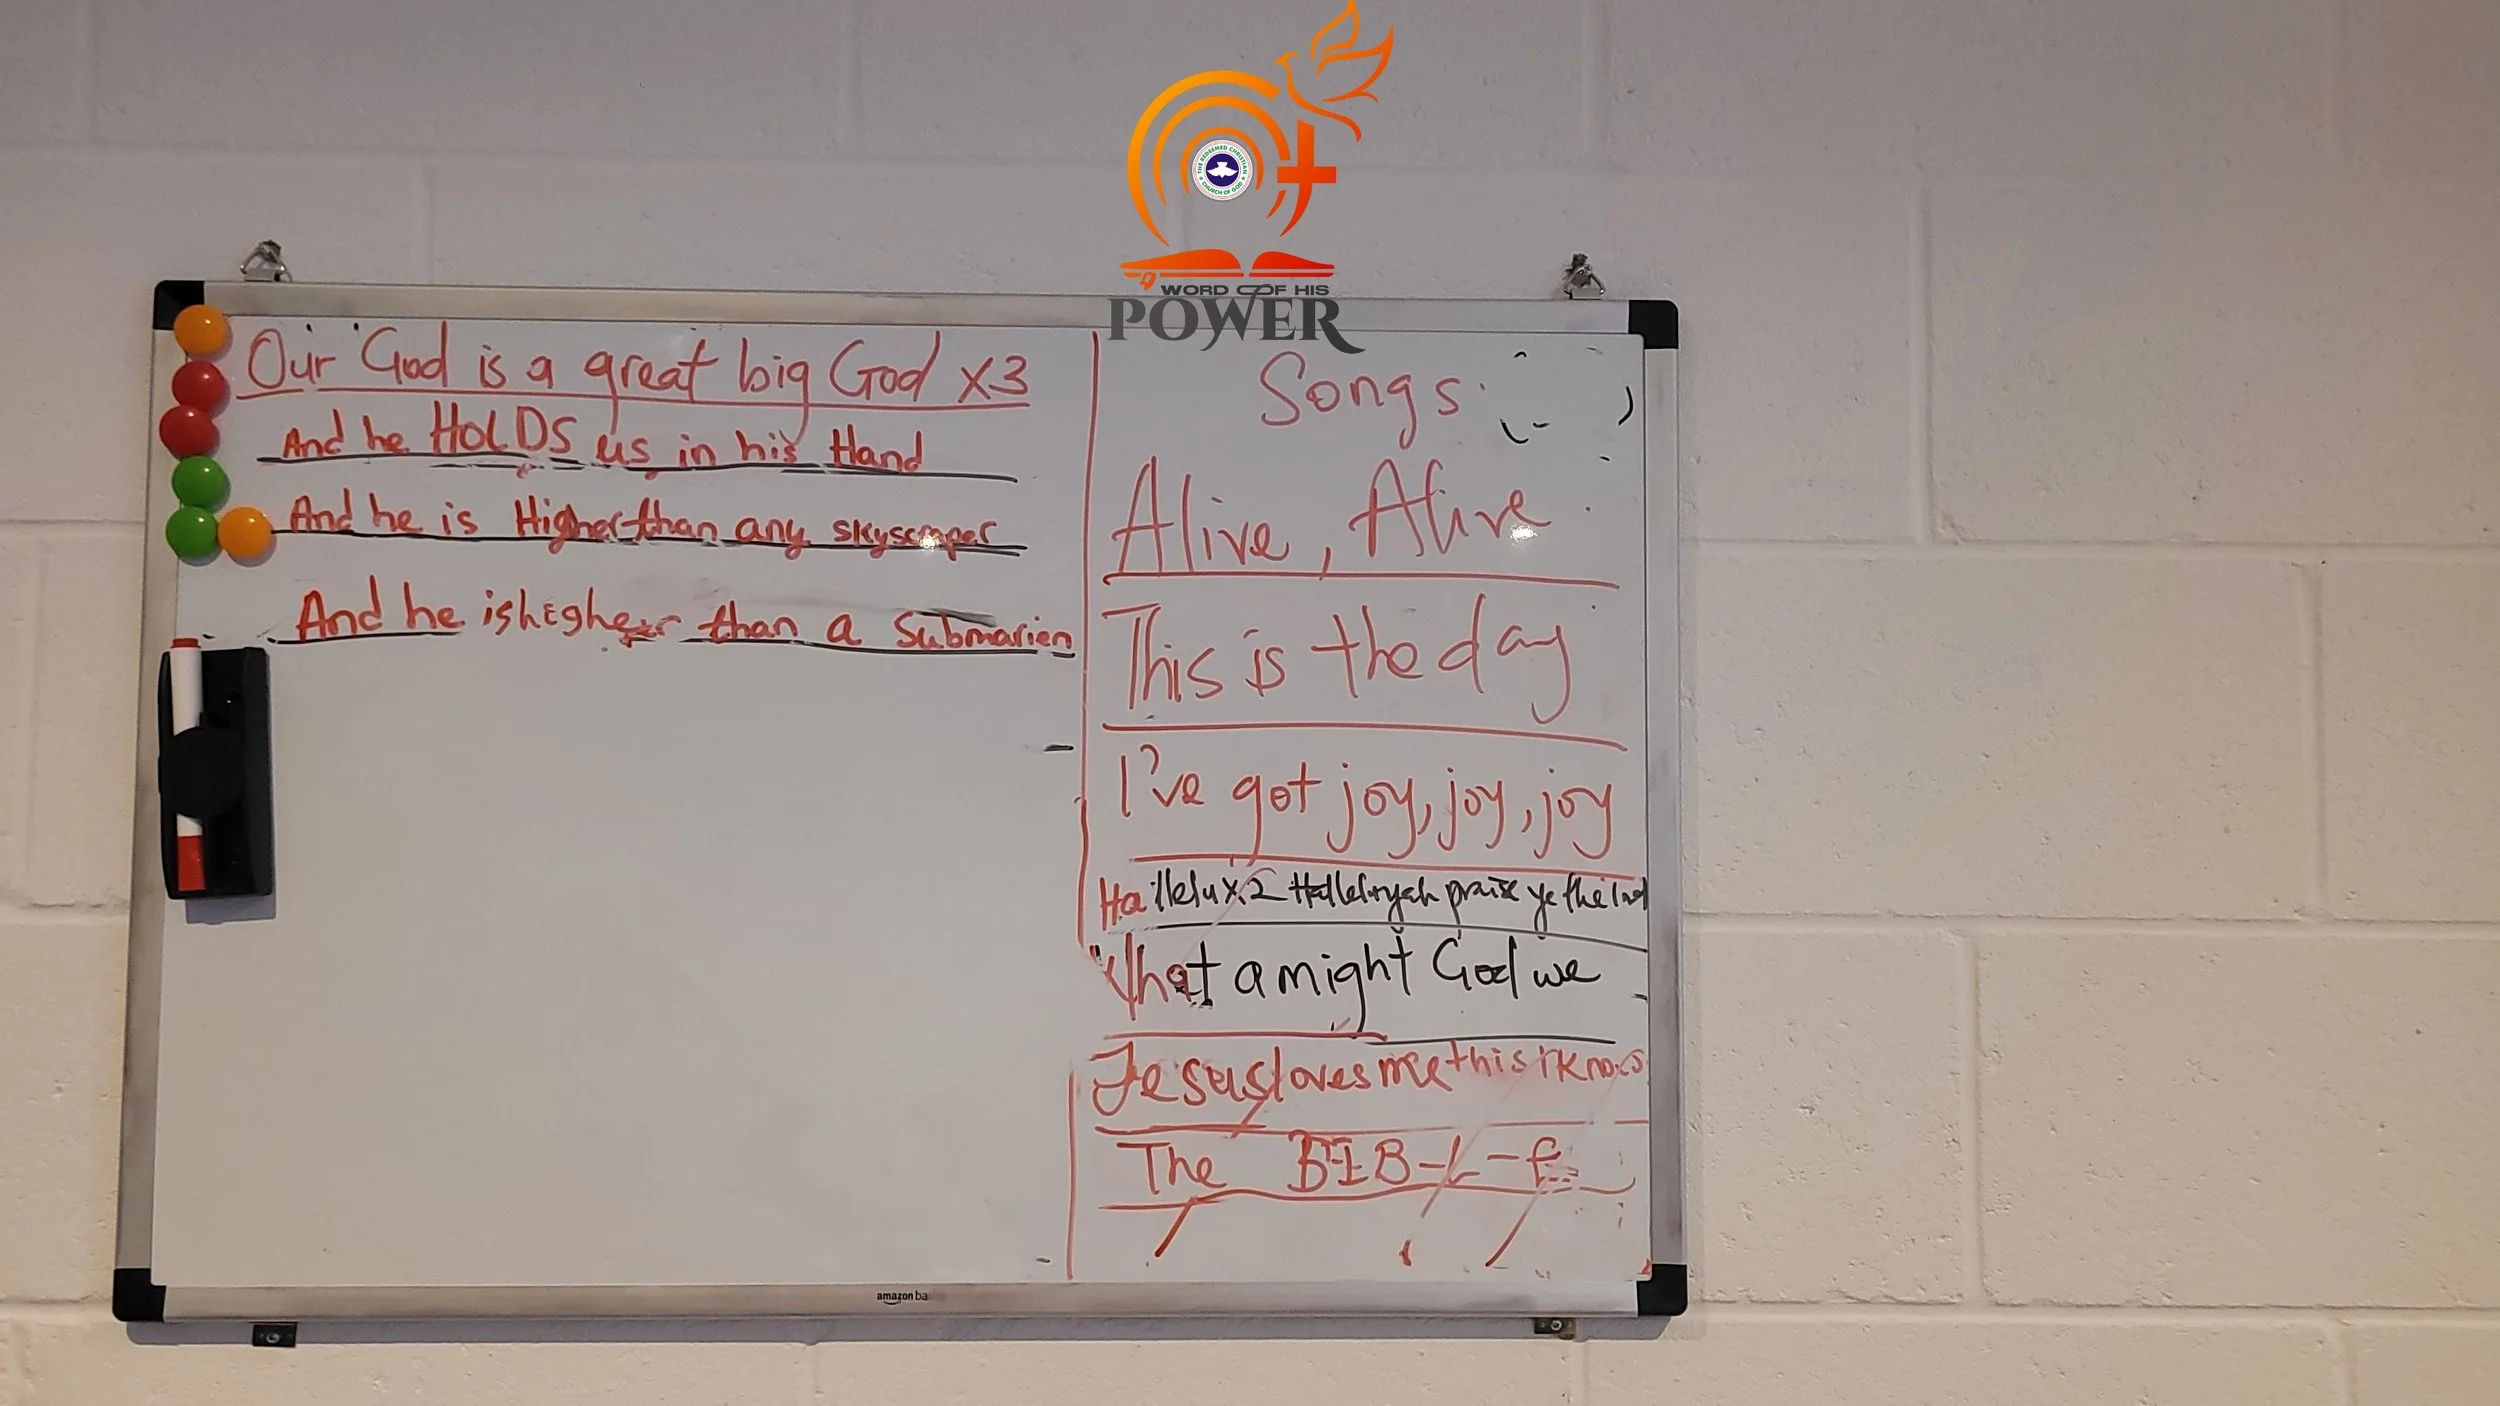 THE REDEEMED CHRISTIAN CHURCH OF GOD
WORD OF HIS
POWER
Our God is a great big God x3
And he HOLDS us in his Hand
And he is Higher than any skyscraper
And he is higher than a Submarien
Songs
Alive, Alive
This is the day
I've got joy, joy, joy
Hallelu x2 Hallelujah praise ye the
What a might God we
Jesus loves me this I know
The BIB-L-E
amazon ba